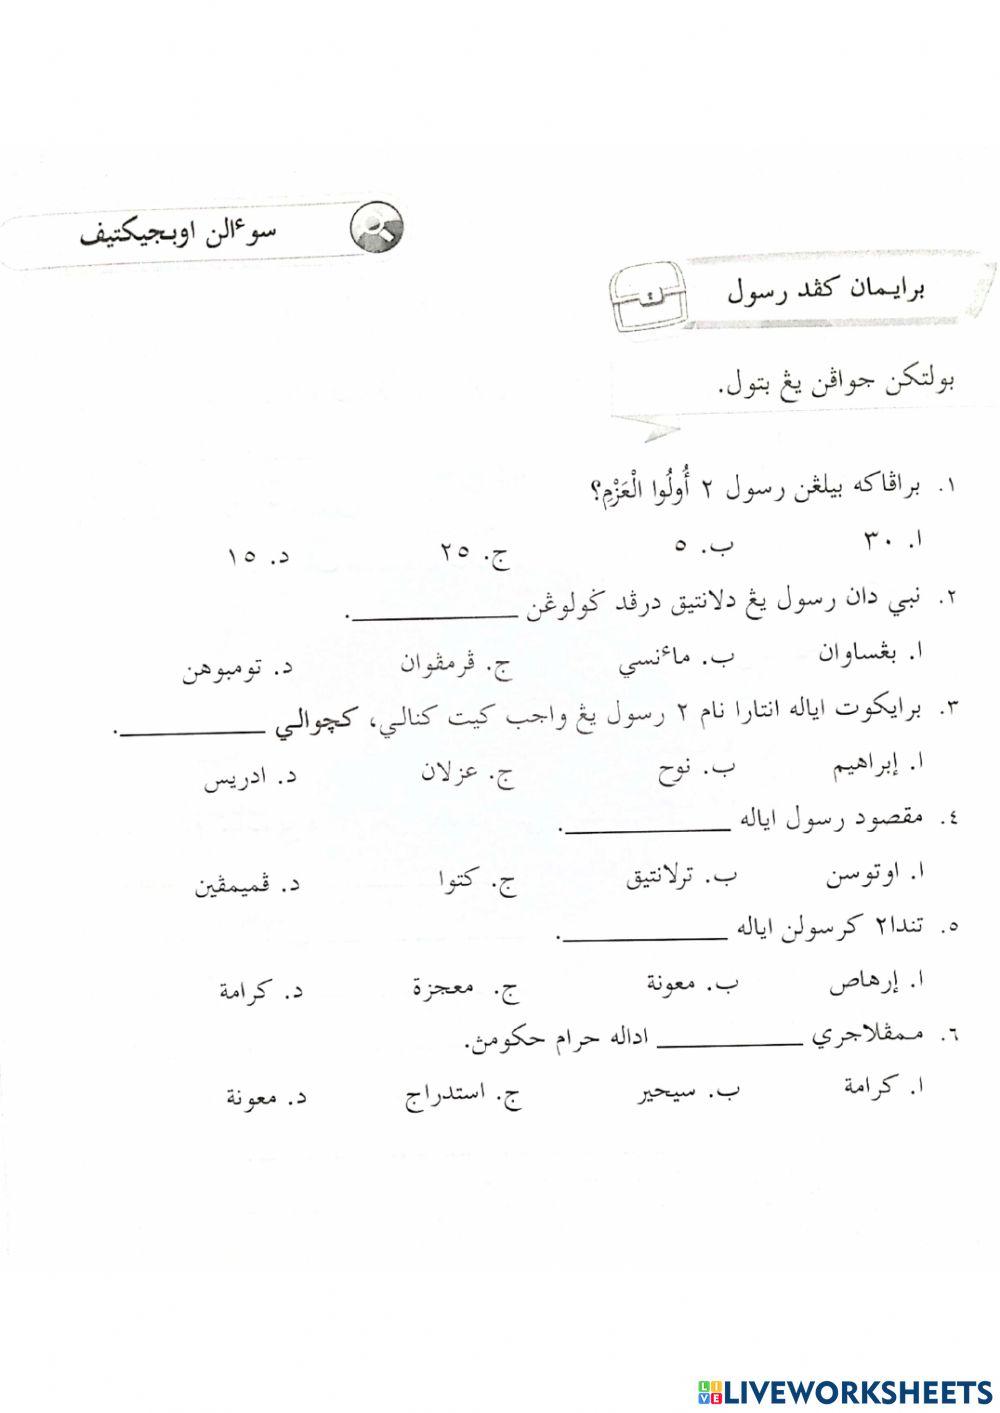 سوءالن اوبجيكتيف
برايمان كڤد رسول
بولتكن جواڤن يڠ بتول.
١. براڤاكه بيلڠن رسول ٢ أُولُوا الْعَزْمِ؟
ا. ٣٠ ب. ٥ ج. ٢٥ د. ١٥
٢. نبي دان رسول يڠ دلانتيق درڤد ݢولوڠن ____________.
ا. بڠساوان ب. ماءنسي ج. ڤرمڤوان د. تومبوهن
٣. برايكوت اياله انتارا نام ٢ رسول يڠ واجب كيت كنالي، كچوالي ____________.
ا. إبراهيم ب. نوح ج. عزلان د. ادريس
٤. مقصود رسول اياله ____________.
ا. اوتوسن ب. ترلانتيق ج. كتوا د. ڤميمڤين
٥. تندا٢ كرسولن اياله ____________.
ا. إرهاص ب. معونة ج. معجزة د. كرامة
٦. ممڤلاجري ____________ اداله حرام حكومڽ.
ا. كرامة ب. سيحير ج. استدراج د. معونة
LIVE LIVEWORKSHEETS